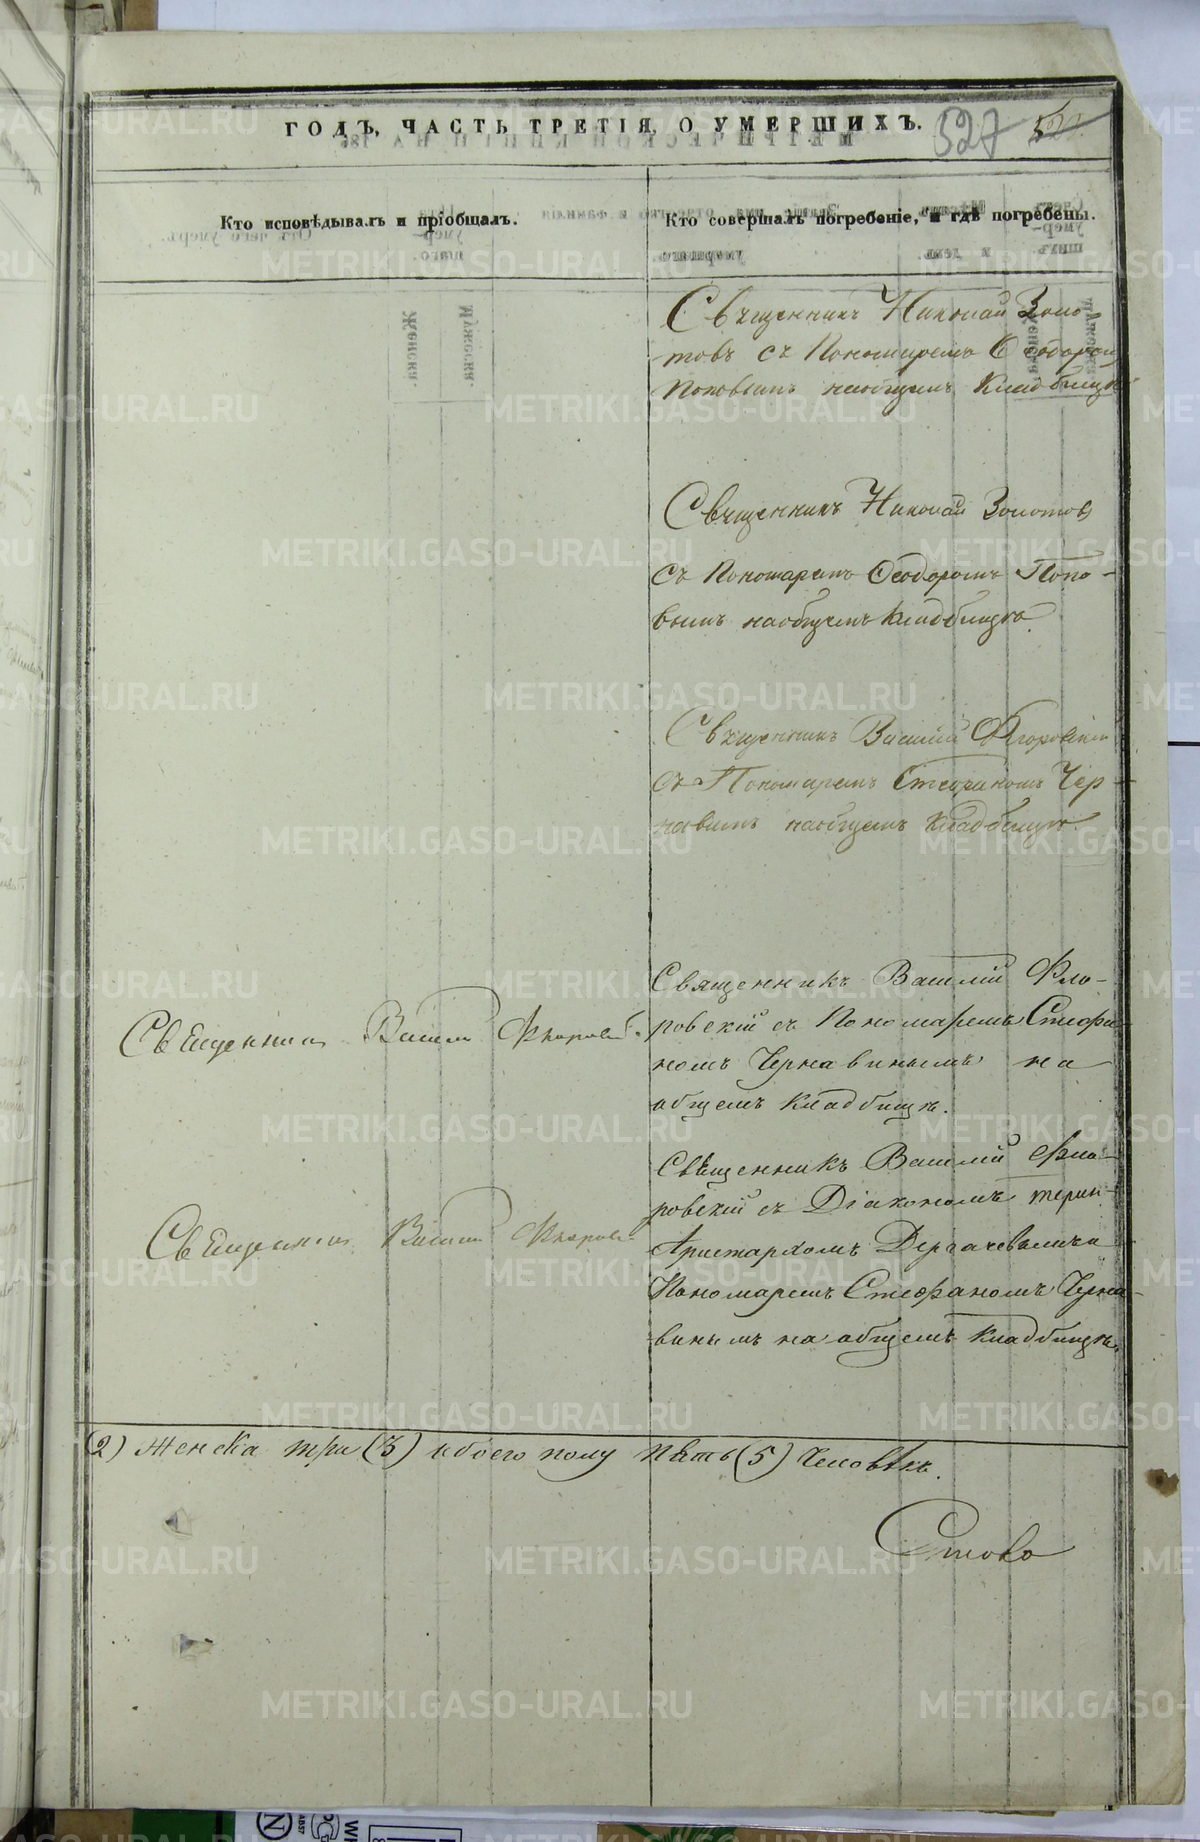 ГОДЪ, ЧАСТЬ ТРЕТІЯ, О УМЕРШИХЪ.
527
Кто исповѣдывалъ и пріобщалъ.
Кто совершалъ погребеніе, и гдѣ погребены.
Священникъ Николай Золо-
товъ съ Пономаремъ Ѳеодоромъ
Поповымъ наобщемъ Кладбищѣ
Священникъ Николай Золотовъ
съ Пономаремъ Ѳеодоромъ Попо-
вымъ наобщемъ Кладбищѣ.
Священникъ Василій Флоровскій
съ Пономаремъ Стефаномъ Чер-
навинымъ наобщемъ Кладбищѣ.
Священникъ Василій Фло-
ровскій съ Пономаремъ Стефа-
номъ Чернавинымъ на
общемъ Кладбищѣ.
Священникъ Василій Флоровскій
Свѣщенникъ Василій Фло-
ровскій съ Діакономъ
Аристархомъ Дергачевымъ и
Пономаремъ Стефаномъ Черна-
винымъ на общемъ Кладбищѣ.
Священникъ Василій Флоровскій
(2) Женска три (3) обоего полу пять (5) Человѣкъ.
METRIKI.GASO-URAL.RU